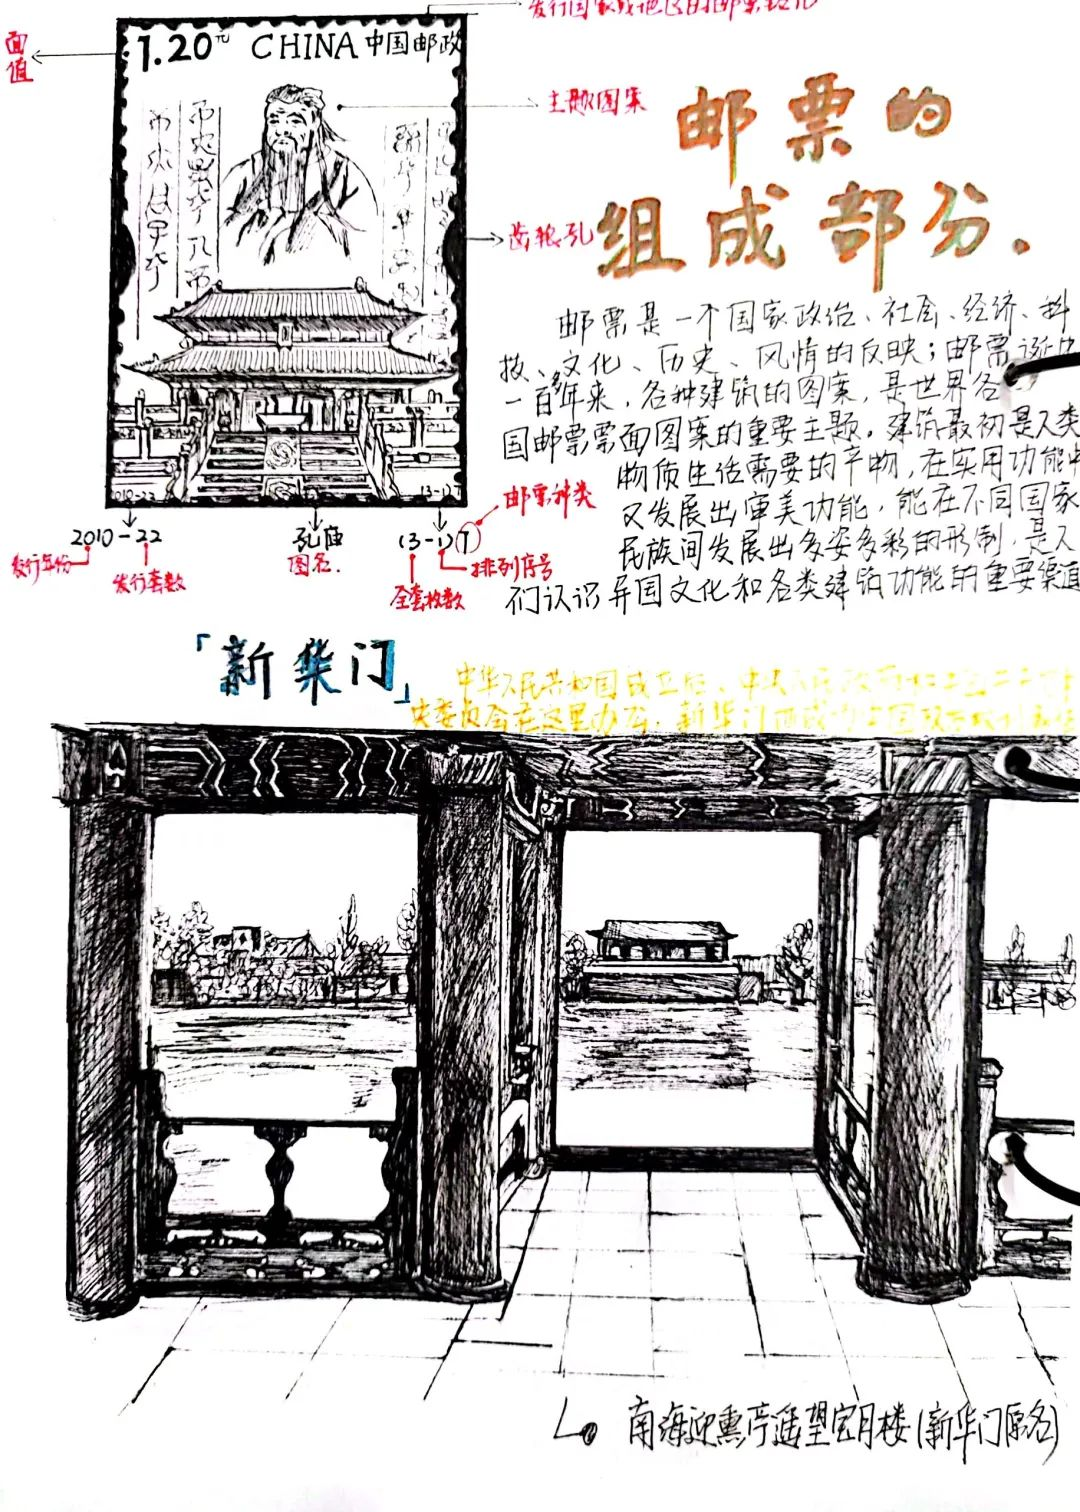 发行国家或地区的邮票铭记
面值
1.20元 CHINA 中国邮政
主题图案
邮票的
组成部分.
齿狼孔
邮票是一个国家政治、社会、经济、科
技、文化、历史、风情的反映；邮票诞
一百多年来，各种建筑的图案，是世界各
国邮票票面图案的重要主题。建筑最初是人类
物质生活需要的产物，在实用功能中
又发展出审美功能，能在不同国家
民族间发展出多姿多彩的形制，是人
们认识异国文化和各类建筑功能的重要渠道
2010-22
(3-1)T
2010-22
孔庙
(3-1)T
邮票种类
发行年份
发行套数
图名.
全套枚数
排列序号
「新华门」
中华人民共和国成立后、中央人民政府
央委员会在这里办公，新华门
南海迎熏亭遥望宝月楼(新华门原名)